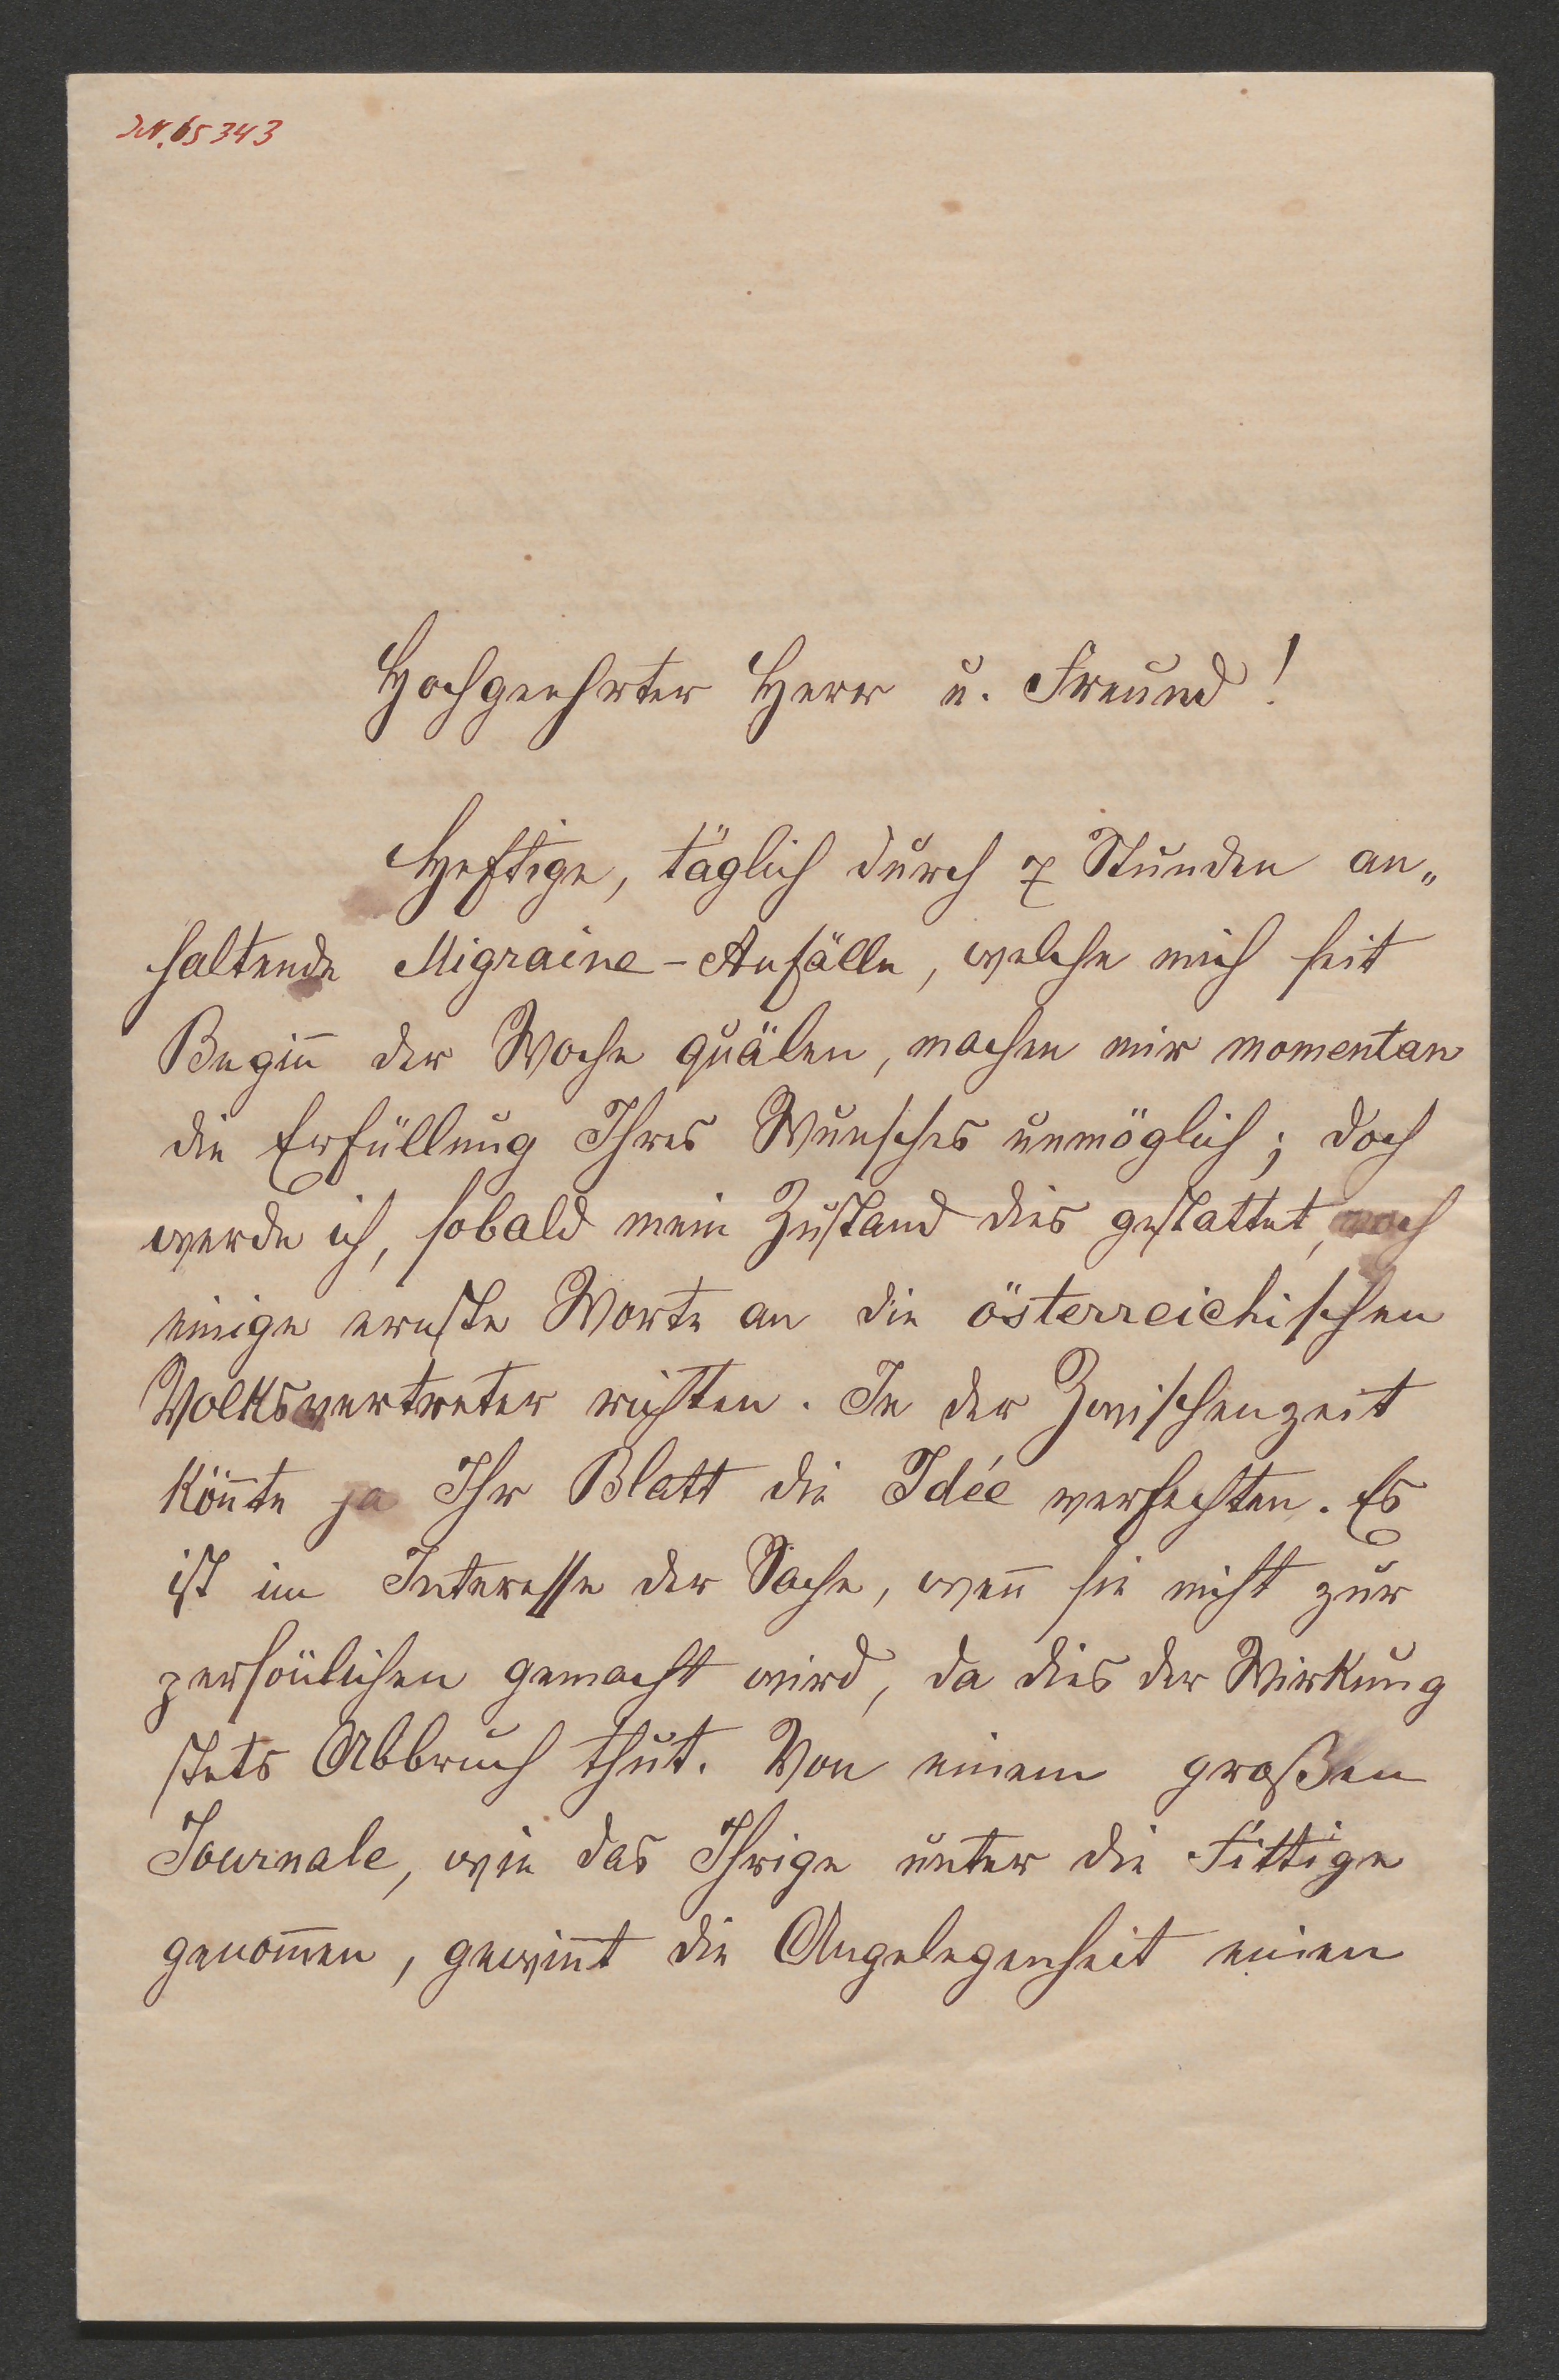 JN. 65343
Hochgeehrter Herr u. Freund!
Heftige, täglich durch 7 Stunden an„
haltende Migraine-Anfälle, welche mich seit
Begin̅ der Woche quälen, machen mir momentan
die Erfüllung Ihres Wunsches unmöglich; doch
werde ich, sobald mein Zustand dies gestattet, noch
einige ernste Worte an die österreichischen
Volksvertreter richten. In der Zwischenzeit
kön̅te ja Ihr Blatt die Idée verfechten. Es
ist im Interesse der Sache, wen̅ sie nicht zur
persönlichen gemacht wird, da dies der Wirkung
stets Abbruch thut. Von einem großen
Journale, wie das Ihrige unter die Fittige
genom̅en, gewin̅t die Angelegenheit einen